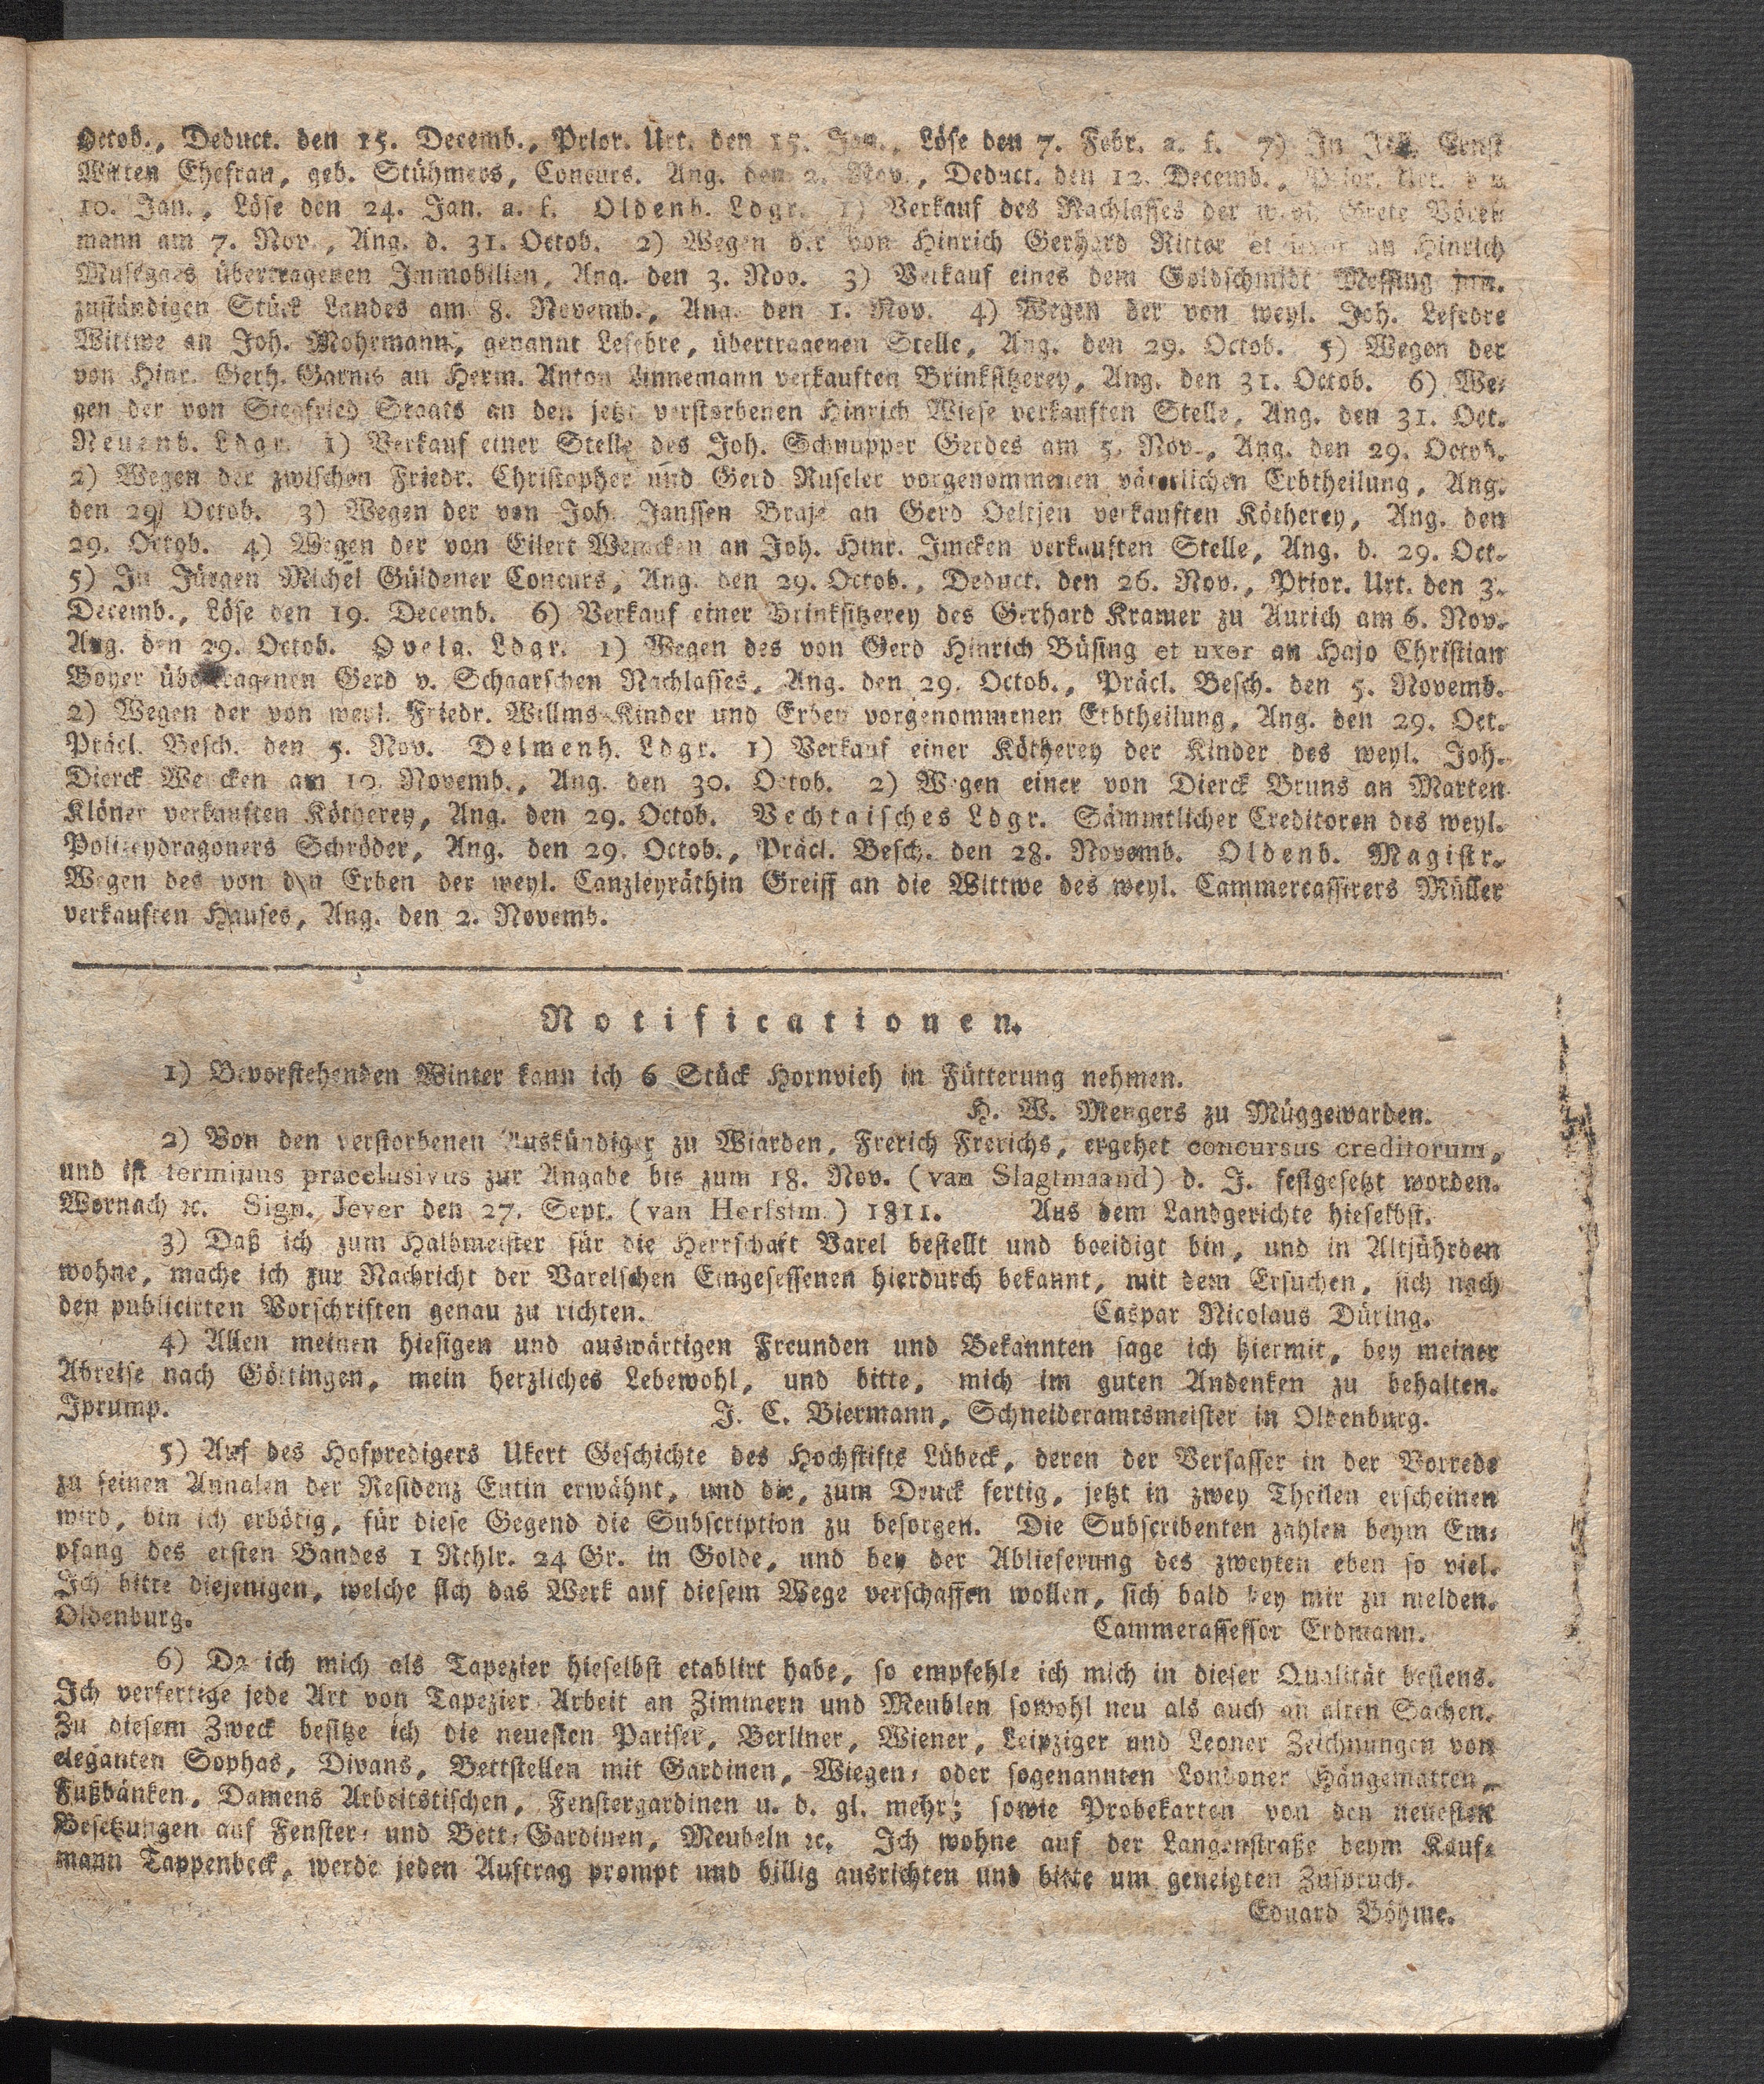 Octob., Deduct. den 15. Decemb., Prior. Urt. den 15. Jan., Löse den 7. Febr. a. f. 7) In Ernst
Witten Ehefrau, geb. Stühmers, Concurs. Ang. den 2. Nov., Deduct. den 12. Decemb., Prior. Urt. den
10. Jan., Löse den 24. Jan. a. f. Oldenb. Ldgr. 1) Verkauf des Nachlasses der weyl. Grete
mann am 7. Nov., Ang. d. 31. Octob. 2) Wegen der von Hinrich Gerhard Ritter et uxor an Hinrich
übertragenen Immobilien, Ang. den 3. Nov. 3) Verkauf eines dem Goldschmidt Messing jun.
zuständigen Stück Landes am 8. Novemb., Ang. den 1. Nov. 4) Wegen der von weyl. Joh. Lefebre
Wittwe an Joh. Mohrmann, genannt Lefebre, übertragenen Stelle, Ang. den 29. Octob. 5) Wegen der
von Hinr. Gerh. Garms an Herm. Anton Linnemann verkauften Brinksitzerey, Ang. den 31. Octob. 6) We-
gen der von Siegfried Staats an den jetzt verstorbenen Hinrich Wiese verkauften Stelle, Ang. den 31. Oct.
Neuenb. Ldgr. 1) Verkauf einer Stelle des Joh. Schnupper Gerdes am 5. Nov., Ang. den 29. Octob.
2) Wegen der zwischen Friedr. Christopher und Gerd Ruseler vorgenommenen väterlichen Erbtheilung, Ang.
den 29. Octob. 3) Wegen der von Joh. Janssen Braje an Gerd Oeltjen verkauften Kötherey, Ang. den
29. Octob. 4) Wegen der von Eilert Wemcken an Joh. Hinr. Imcken verkauften Stelle, Ang. d. 29. Oct.
5) In Jürgen Michel Güldener Concurs, Ang. den 29. Octob., Deduct. den 26. Nov., Prior. Urt. den 3.
Decemb., Löse den 19. Decemb. 6) Verkauf einer Brinksitzerey des Gerhard Kramer zu Aurich am 6. Nov.
Ang. den 29. Octob. Ovelg. Ldgr. 1) Wegen des von Gerd Hinrich Büsing et uxor an Hajo Christian
Boyer übertragenen Gerd v. Schaarschen Nachlasses, Ang. den 29. Octob., Präcl. Besch. den 5. Novemb.
2) Wegen der von weyl. Friedr. Willms Kinder und Erben vorgenommenen Erbtheilung, Ang. den 29. Oct.
Präcl. Besch. den 5. Nov. Delmenh. Ldgr. 1) Verkauf einer Kötherey der Kinder des weyl. Joh.
Dierck Wencken am 10. Novemb., Ang. den 30. Octob. 2) Wegen einer von Dierck Bruns an Marten
Klöner verkauften Kötherey, Ang. den 29. Octob. Vechtaisches Ldgr. Sämmtlicher Creditoren des weyl.
Polizeydragoners Schröder, Ang. den 29. Octob., Präcl. Besch. den 28. Novemb. Oldenb. Magistr.
Wegen des von den Erben der weyl. Canzleyräthin Greiff an die Wittwe des weyl. Cammercassirers Müller
verkauften Hauses, Ang. den 2. Novemb.
Notificationen.
1) Bevorstehenden Winter kann ich 6 Stück Hornvieh in Fütterung nehmen.
H. W. Mengers zu Müggewarden.
2) Von den verstorbenen Auskündiger zu Wiarden, Frerich Frerichs, ergehet concursus creditorum,
und ist terminus praeclusivus zur Angabe bis zum 18. Nov. (van Slagtmaand) d. J. festgesetzt worden.
Wornach ꝛc. Sign. Jever den 27. Sept. (van Herfstm.) 1811. Aus dem Landgerichte hieselbst.
3) Daß ich zum Halbmeister für die Herrschaft Varel bestellt und beeidigt bin, und in Altjührden
wohne, mache ich zur Nachricht der Varelschen Eingesessenen hierdurch bekannt, mit dem Ersuchen, sich nach
den publicirten Vorschriften genau zu richten. Caspar Nicolaus Düring.
4) Allen meinen hiesigen und auswärtigen Freunden und Bekannten sage ich hiermit, bey meiner
Abreise nach Göttingen, mein herzliches Lebewohl, und bitte, mich im guten Andenken zu behalten.
Iprump. J. C. Biermann, Schneideramtsmeister in Oldenburg.
5) Auf des Hofpredigers Ukert Geschichte des Hochstifts Lübeck, deren der Verfasser in der Vorrede
zu seinen Annalen der Residenz Eutin erwähnt, und die, zum Druck fertig, jetzt in zwey Theilen erscheinen
wird, bin ich erbötig, für diese Gegend die Subscription zu besorgen. Die Subscribenten zahlen beym Em-
pfang des ersten Bandes 1 Rthlr. 24 Gr. in Golde, und bey der Ablieferung des zweyten eben so viel.
Ich bitte diejenigen, welche sich das Werk auf diesem Wege verschaffen wollen, sich bald bey mir zu melden.
Oldenburg. Cammerassessor Erdmann.
6) Da ich mich als Tapezier hieselbst etablirt habe, so empfehle ich mich in dieser Qualität bestens.
Ich verfertige jede Art von Tapezier Arbeit an Zimmern und Meublen sowohl neu als auch an alten Sachen.
Zu diesem Zweck besitze ich die neuesten Pariser, Berliner, Wiener, Leipziger und Leoner Zeichnungen von
eleganten Sophas, Divans, Bettstellen mit Gardinen, Wiegen- oder sogenannten Londoner Hängematten,
Fußbänken, Damens Arbeitstischen, Fenstergardinen u. d. gl. mehr; sowie Probekarten von den neuesten
Besetzungen auf Fenster- und Bett-Gardinen, Meubeln ꝛc. Ich wohne auf der Langenstraße beym Kauf-
mann Tappenbeck, werde jeden Auftrag prompt und billig ausrichten und bitte um geneigten Zuspruch.
Eduard Böhme.